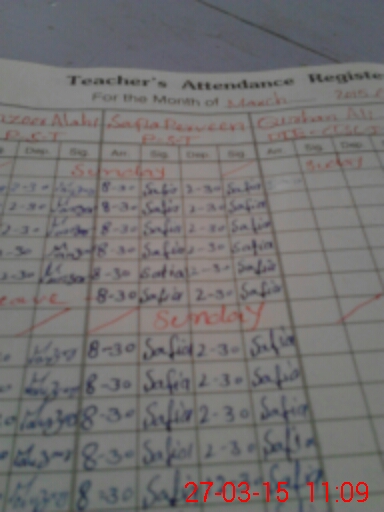 Teacher's Attendance Registe
For the Month of March 2015
Safia Perveen
P.S.T P.S.T
Dep. Sig. Arr. Sig. Dep. Sig. Arr. Sig. Dep
Sunday Sunday
2-30 8-30 Safia 2-30 Safia
2-30 8-30 Safia 2-30 Safia
2-30 8-30 Safia 2-30 Safia
-30 8-30 Safia 2-30 Safia
2-30 8-30 Safia 2-30 Safia
eave 8-30 Safia 2-30 Safia
Sunday
8-30 Safia 2-30 Safia
8-30 Safia 2-30 Safia
8-30 Safia 2-30 Safia
8-30 Safia 2-30 Safia
8-30 Safia 2-30 Safia
27-03-15 11:09